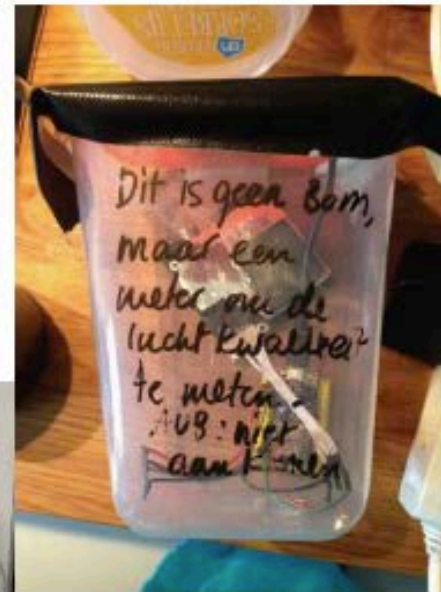 Dit is geen Bom,
maar een
meter om de
luchtkwaliteit
te meten.
AUB: niet
aankomen